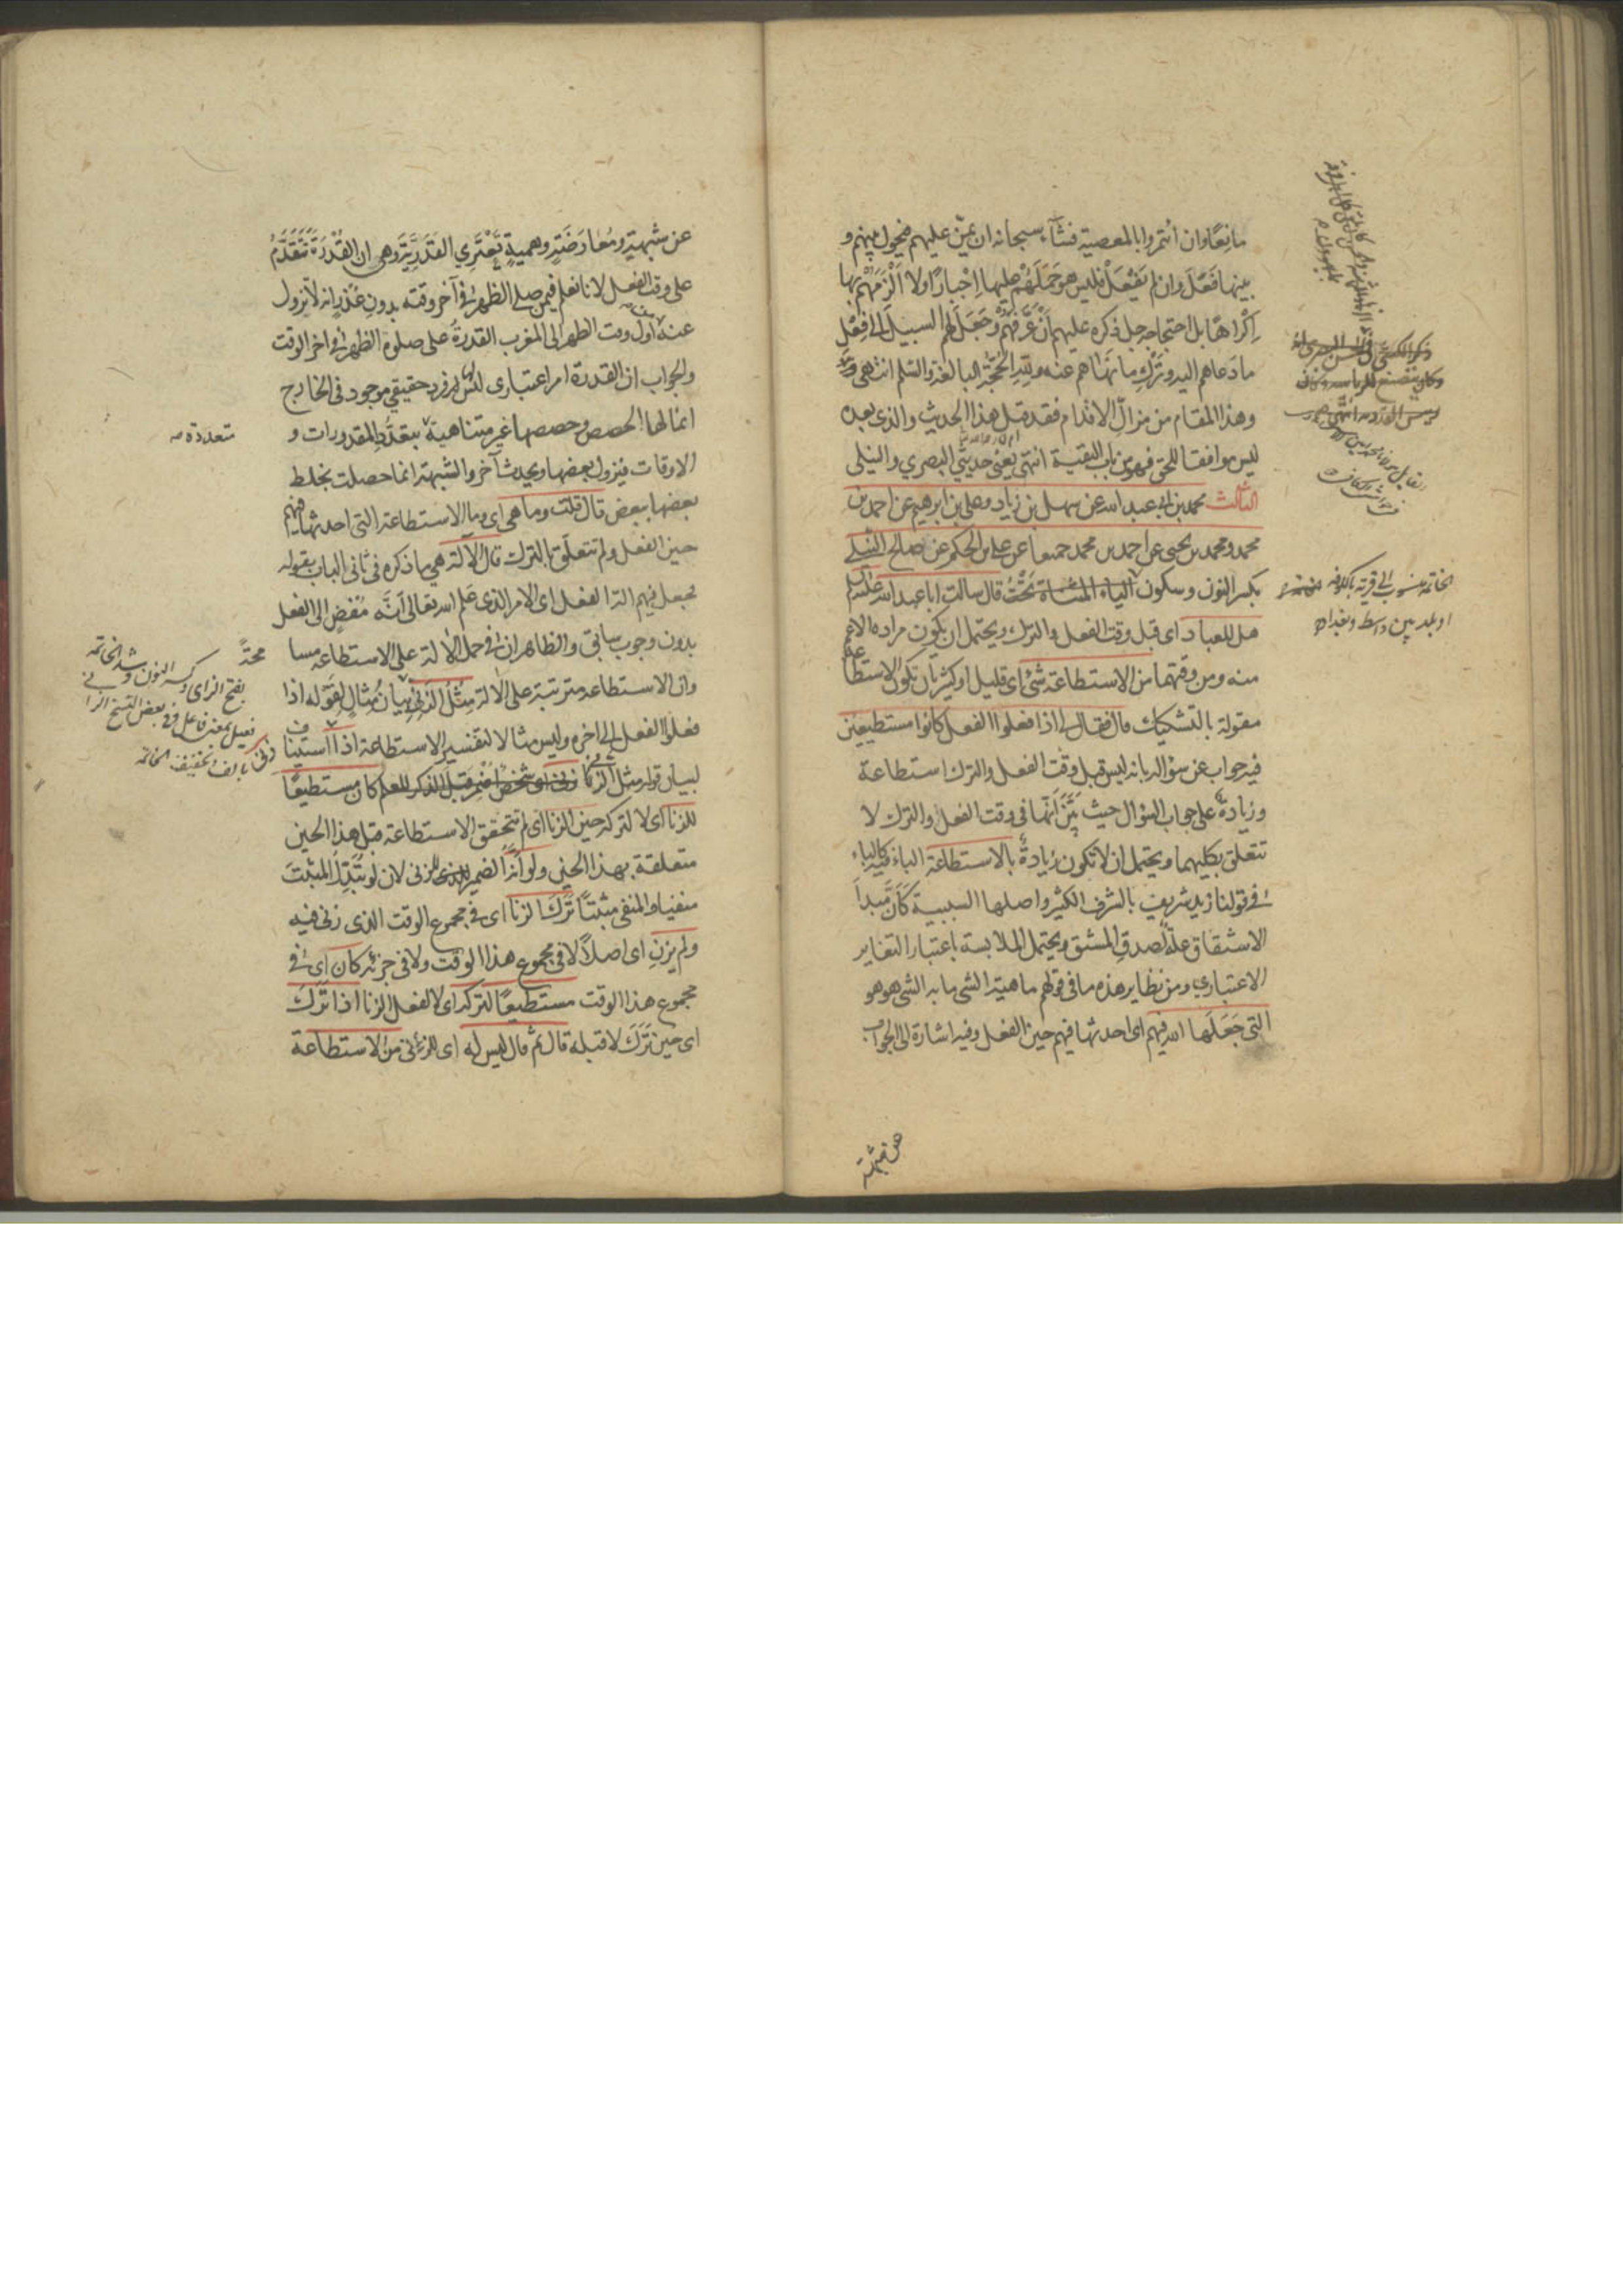 مانعًا وان ائتمروا بالمعصية فشاء سبحانه ان يمنّ عليهم فيحول بينهم و
بينها فَعَلَ وان لم يَفْعَلْ فليس هو حَمَلَهُمْ عليها اِجْبارًا ولا اَلْزَمَهُمْ بها
اِكْراهًا بل احتجاجه جل ذكره عليهم اَنْ عَرَّفَهُمْ وَجَعَلَ لهم السبيلَ الى فِعْلِ
ما دعاهم اليه وتَرْكِ ما نَهاهم عنه ولِلّهِ الحُجَّةُ البالغة والسّلم انتهى
وهذا المقام من مزالّ الاقدام فقد قيل هذا الحديث والذى بعده
ليس موافقا للحق فهو من باب التقية انتهى يعنى حديثَي البصري والنيلى
الثالث محمد بن ابى عبد الله عن سهل بن زياد وعلى بن ابرهيم عن احمد بن
محمد ومحمد بن يحيى عن احمد بن محمد جميعا عن على بن الحكم عن صالح النيلى
بكسر النون وسكون الياء المثناة تَحْتُ قال سالت ابا عبد الله عليه السلم
هل للعباد اى قبل وقت الفعل والترك ويحتمل ان يكون مراده الاعم
منه ومن وقتهما من الاستطاعة شئ اى قليل او كثير بأن تكون الاستطاعة
مقولة بالتشكيك قال فقال لى اذا فعلوا الفعل كانوا مستطيعين
فيه جواب عن سؤاله بانه ليس قبل وقت الفعل والترك استطاعة
وزيادةٌ على جواب السؤال حيث بَيَّنَ اَنَّها فى وقت الفعل والترك لا
تتعلق بكليهما ويحتمل ان لا تكون زيادة بالاستطاعة الباء فيه كالباء
فى قولنا زيد شريف بالشرف الكثير واصلها السببية كَاَنَّ مَبدأَ
الاشتقاق علّة لصدق المشتق ويحتمل الملابسة باعتبار التغاير
الاعتباري ومن نظاير هذه ما فى قولهم ماهية الشئ ما به الشئ هو هو
التى جَعَلَها الله فيهم اى احدثها فيهم حين الفعل وفيه اشارة الى الجواب
عن شبهة
النيل منسوب الى قرية بالكوفة
او بلد بين واسط وبغداد
عن شبهةٍ ومُعارَضَةٍ وهميةٍ تَعْتَرِي القَدَرِيَّةَ وهى ان القُدْرَةَ تَتَقَدَّمُ
على وقت الفعل لانا نعلم فيمن صلى الظهر فى آخر وقته بدون عُذْرٍ انه لا تزول
عنه من اول وقت الظهر الى المغرب القدرةُ على صلوة الظهر فى اخر الوقت
والجواب ان القدرة امر اعتبارى ليس له فرد حقيقي موجود فى الخارج
انما لها الحصص وحصصها غير متناهية بتعدّد المقدورات و
الاوقات فيزول بعضها ويحدث آخر والشبهة انما حصلت بخلط
بعضها ببعض قال قلت وما هى اى وما الاستطاعة التى احدثها فيهم
حين الفعل ولم تتعلّق بالترك قال الآلة هي ما ذكره فى ثانى الباب بقوله
فجعل فيهم آلة الفعل اى الامر الذى عَلِمَ الله تعالى اَنَّه مُفْضٍ الى الفعل
بدون وجوب سابق والظاهر ان فى حمل الآلة على الاستطاعة مسا
وان الاستطاعة مترتبة على الآلة مِثْلُ الزَنِّي بيانُ مثالٍ لقوله اذا
فعلوا الفعل الى اخره وليس مثالا لتفسير الاستطاعة اذا استينا
لبيان قوله مثل الزنى كان مستطيعًا
للزنا اى لا لتركه حين الزنا اى لم تتحقق الاستطاعة قبل هذا الحين
متعلقة بهذا الحين ولو اَنَّه الضمير للزنى لان لو تُبَدِّلُ المثبتَ
منفيا والمنفى مثبتًا تَرَكَ الزنا اى فى مجموع الوقت الذى زنى فيه
ولم يزنِ اى اصلاً لا فى مجموع هذا الوقت ولا فى جزئه كان اى فى
مجموع هذا الوقت مستطيعًا لتركه اى لا لفعل الزنا اذا تَرَكَ
اى حين تَرَكَ لا قبله قال ثم قال ليس له اى للزنى من الاستطاعة
متعددة
محة
بفتح الزاى وكسر النون وشد الخاتمة
فعيل بمعنى فاعل وفى بعض النسخ الزا
نى بالف وتخفيف الخاتمة